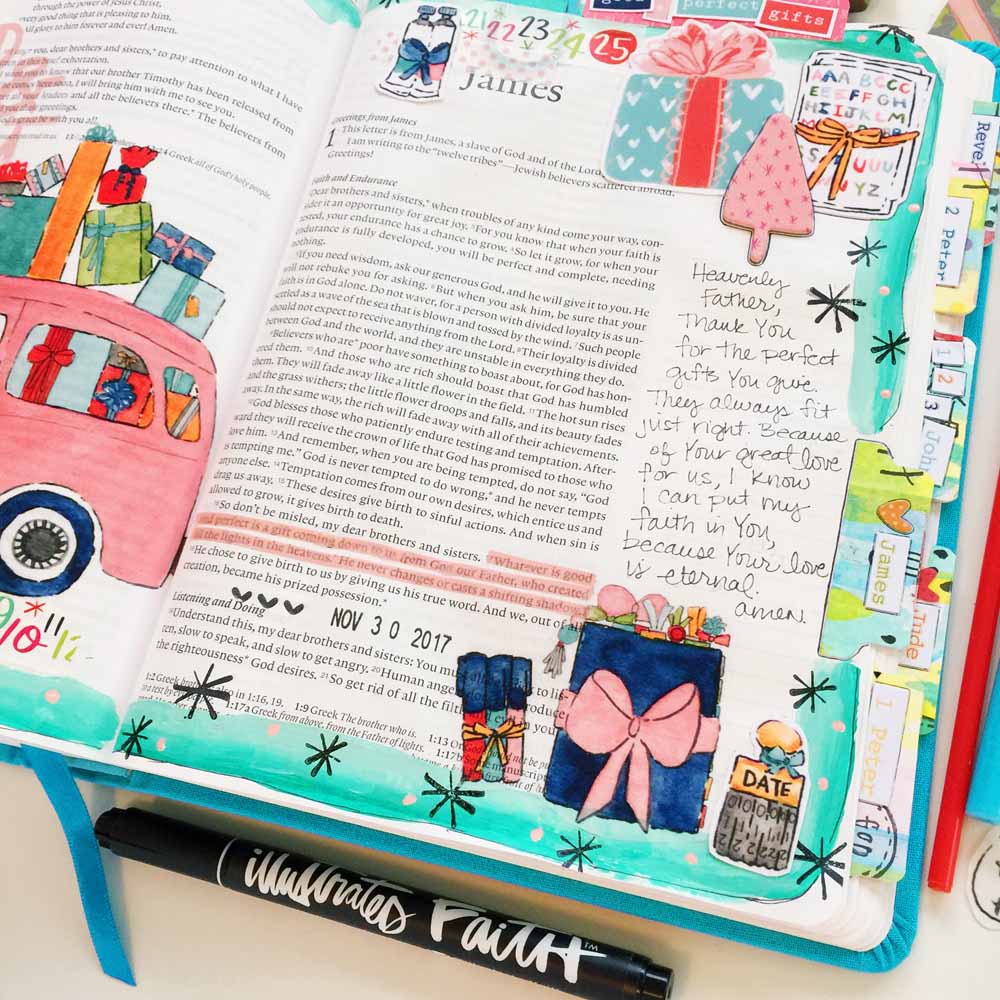 through the power of Jesus Christ,
every good thing that is pleasing to him.
All glory to him forever and ever! Amen.
you, dear brothers and sisters,* to pay attention to what I have
in this brief exhortation.
want you to know that our brother Timothy has been released from
comes here soon, I will bring him with me to see you.
all your leaders and all the believers there.* The believers from
greetings.
grace be with you all.
Greek all of God's holy people.
9 10 11 12
good perfect gifts
21 22 23 24 25
James
Greetings from James
1 This letter is from James, a slave of God and of the Lord
I am writing to the "twelve tribes"—Jewish believers scattered abroad.
Greetings!
Faith and Endurance
2Dear brothers and sisters,* when troubles of any kind come your way, con-
sider it an opportunity for great joy. 3For you know that when your faith is
tested, your endurance has a chance to grow. 4So let it grow, for when your
endurance is fully developed, you will be perfect and complete, needing
nothing.
5If you need wisdom, ask our generous God, and he will give it to you. He
will not rebuke you for asking. 6But when you ask him, be sure that your
faith is in God alone. Do not waver, for a person with divided loyalty is as un-
settled as a wave of the sea that is blown and tossed by the wind. 7Such people
should not expect to receive anything from the Lord. 8Their loyalty is divided
between God and the world, and they are unstable in everything they do.
9Believers who are* poor have something to boast about, for God has hon-
ored them. 10And those who are rich should boast that God has humbled
them. They will fade away like a little flower in the field. 11The hot sun rises
and the grass withers; the little flower droops and falls, and its beauty fades
away. In the same way, the rich will fade away with all of their achievements.
12God blesses those who patiently endure testing and temptation. After-
ward they will receive the crown of life that God has promised to those who
love him. 13And remember, when you are being tempted, do not say, "God
is tempting me." God is never tempted to do wrong,* and he never tempts
anyone else. 14Temptation comes from our own desires, which entice us and
drag us away. 15These desires give birth to sinful actions. And when sin is
allowed to grow, it gives birth to death.
16So don't be misled, my dear brothers and sisters. 17Whatever is good
and perfect is a gift coming down to us from God our Father, who created
all the lights in the heavens.* He never changes or casts a shifting shadow.*
18He chose to give birth to us by giving us his true word. And we, out of all
creation, became his prized possession.*
Listening and Doing
NOV 3 0 2017
19Understand this, my dear brothers and sisters: You must to lis-
ten, slow to speak, and slow to get angry. 20Human anger
the righteousness* God desires. 21So get rid of all the filth evil in your
1:2 Greek also in 1:16, 19. 1:9 Greek The brother who is. 1:13 Or God should not be
1:17a Greek from above, from the Father of lights. 1:17b Some manuscripts
AAA BCCC
EEEFF GH
HIIJKLM
UUU
YZ
Heavenly
Father,
Thank You
for the perfect
gifts You give.
They always fit
just right. Because
of Your great love
for us, I know
I can put my
faith in You,
because Your love
is eternal.
amen.
DATE
2 Peter
1 2 3
John
James
Jude
1 Peter
fon
illustrated FaitH™